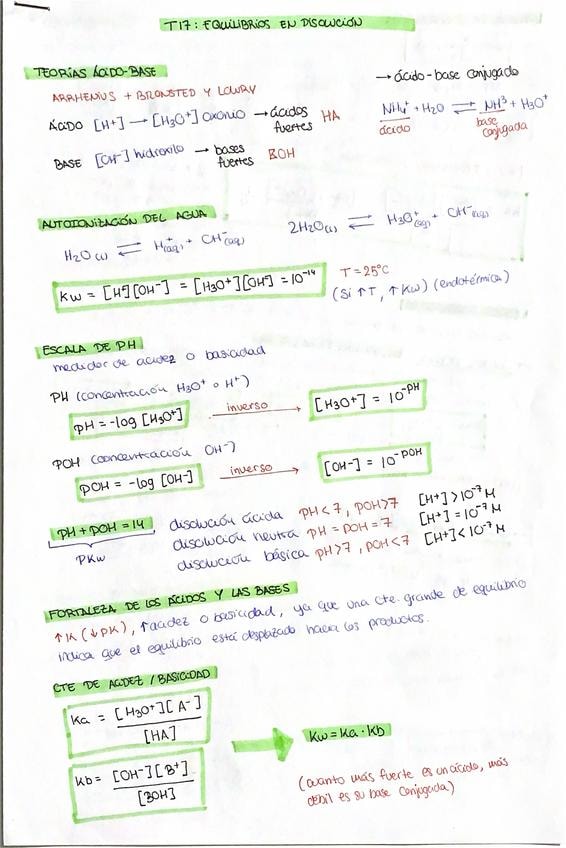 T17: EQUILIBRIOS EN DISOLUCIÓN
TEORÍAS ÁCIDO-BASE
ARRHENIUS + BRONSTED Y LOWRY
ÁCIDO [H+] → [H3O+] oxonio → ácidos fuertes HA
BASE [OH-] hidroxilo → bases fuertes BOH
→ ácido-base conjugado
NH4+ + H2O ⇌ NH3 + H3O+
ácido base conjugada
AUTOIONIZACIÓN DEL AGUA
H2O(l) ⇌ H+(aq) + OH-(aq)
2H2O(l) ⇌ H3O+(aq) + OH-(aq)
Kw = [H+][OH-] = [H3O+][OH-] = 10^-14
T = 25°C
(Si ↑T, ↑Kw) (endotérmica)
ESCALA DE PH
medidor de acidez o basicidad
PH (concentración H3O+ o H+)
pH = -log [H3O+] inverso → [H3O+] = 10^-PH
POH (concentración OH-)
POH = -log [OH-] inverso → [OH-] = 10^-POH
PH + POH = 14
PKw
disolución ácida PH < 7, POH > 7 [H+] > 10^-7 M
disolución neutra PH = POH = 7 [H+] = 10^-7 M
disolución básica PH > 7, POH < 7 [H+] < 10^-7 M
FORTALEZA DE LOS ÁCIDOS Y LAS BASES
↑K (↓PK), ↑acidez o basicidad, ya que una cte. grande de equilibrio
indica que el equilibrio está desplazado hacia los productos.
CTE DE ACIDEZ / BASICIDAD
Ka = [H3O+][A-] / [HA]
Kb = [OH-][B+] / [BOH]
Kw = Ka · Kb
(cuanto más fuerte es un ácido, más
débil es su base conjugada)